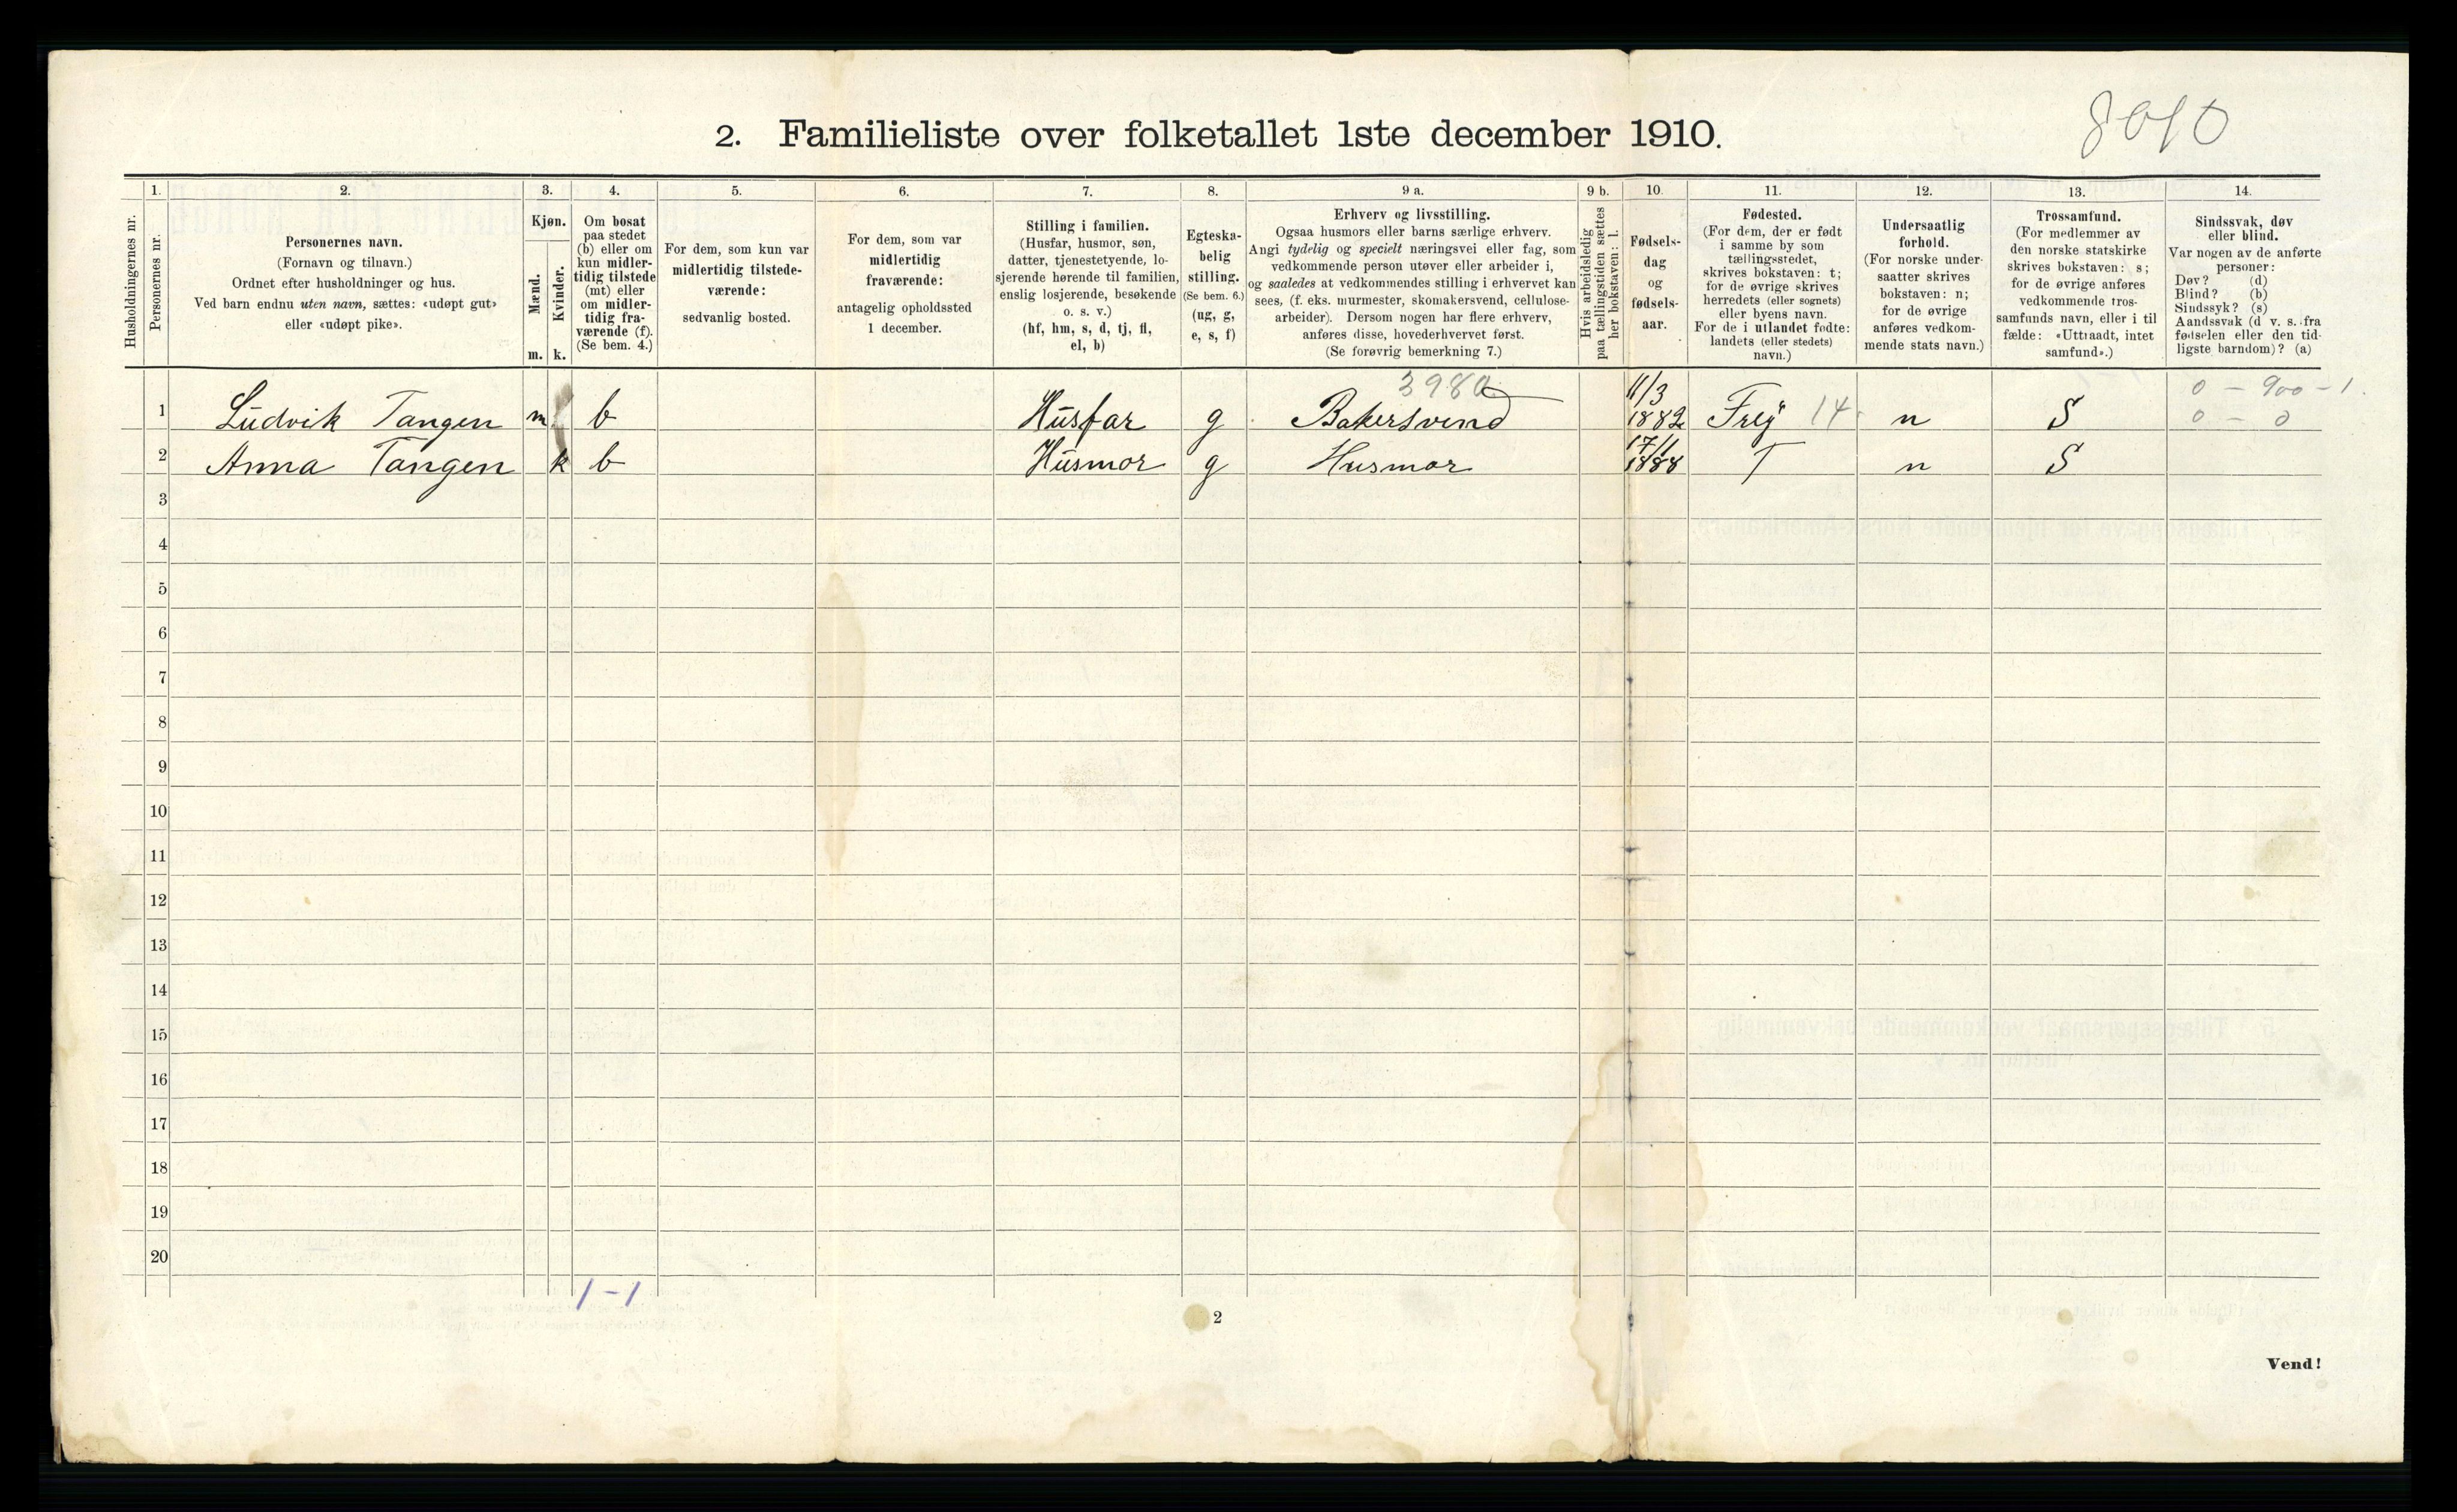 8010
2. Familieliste over folketallet 1ste december 1910.
Husholdningernes nr.
1.
Personernes nr.
2.
Personernes navn.
(Fornavn og tilnavn.)
Ordnet efter husholdninger og hus.
Ved barn endnu uten navn, sættes: «udøpt gut»
eller «udøpt pike».
3.
Kjøn.
Mænd.
Kvinder.
m. k.
4.
Om bosat
paa stedet
(b) eller om
kun midler-
tidig tilstede
(mt) eller
om midler-
tidig fra-
værende (f).
(Se bem. 4.)
5.
For dem, som kun var
midlertidig tilstede-
værende:
sedvanlig bosted.
6.
For dem, som var
midlertidig
fraværende:
antagelig opholdssted
1 december.
7.
Stilling i familien.
(Husfar, husmor, søn,
datter, tjenestetyende, lo-
sjerende hørende til familien,
enslig losjerende, besøkende
o. s. v.)
(hf, hm, s, d, tj, fl,
el, b)
8.
Egteska-
belig
stilling.
(Se bem. 6.)
(ug, g,
e, s, f)
9 a.
Erhverv og livsstilling.
Ogsaa husmors eller barns særlige erhverv.
Angi tydelig og specielt næringsvei eller fag, som
vedkommende person utøver eller arbeider i,
og saaledes at vedkommendes stilling i erhvervet kan
sees, (f. eks. murmester, skomakersvend, cellulose-
arbeider). Dersom nogen har flere erhverv,
anføres disse, hovederhvervet først.
(Se forøvrig bemerkning 7.)
9 b.
Hvis arbeidsledig
paa tællingstiden sættes
her bokstaven: l.
10.
Fødsels-
dag
og
fødsels-
aar.
11.
Fødested.
(For dem, der er født
i samme by som
tællingsstedet,
skrives bokstaven: t;
for de øvrige skrives
herredets (eller sognets)
eller byens navn.
For de i utlandet fødte:
landets (eller stedets)
navn.)
12.
Undersaatlig
forhold.
(For norske under-
saatter skrives
bokstaven: n;
for de øvrige
anføres vedkom-
mende stats navn.)
13.
Trossamfund.
(For medlemmer av
den norske statskirke
skrives bokstaven: s;
for de øvrige anføres
vedkommende tros-
samfunds navn, eller i til
fælde: «Uttraadt, intet
samfund».)
14.
Sindssvak, døv
eller blind.
Var nogen av de anførte
personer:
Døv? (d)
Blind? (b)
Sindssyk? (s)
Aandssvak (d v. s. fra
fødselen eller den tid-
ligste barndom)? (a)
3980 11/3 0 - 900 - 1.
1 Ludvik Tangen m b Husfar g Bakersvend 1882 Frej 14 n S 0 - 0
17/1
2 Anna Tangen k b Husmor g Husmor 1888 T n S
3
4
5
6
7
8
9
10
11
12
13
14
15
16
17
18
19
20
1-1
2
Vend!